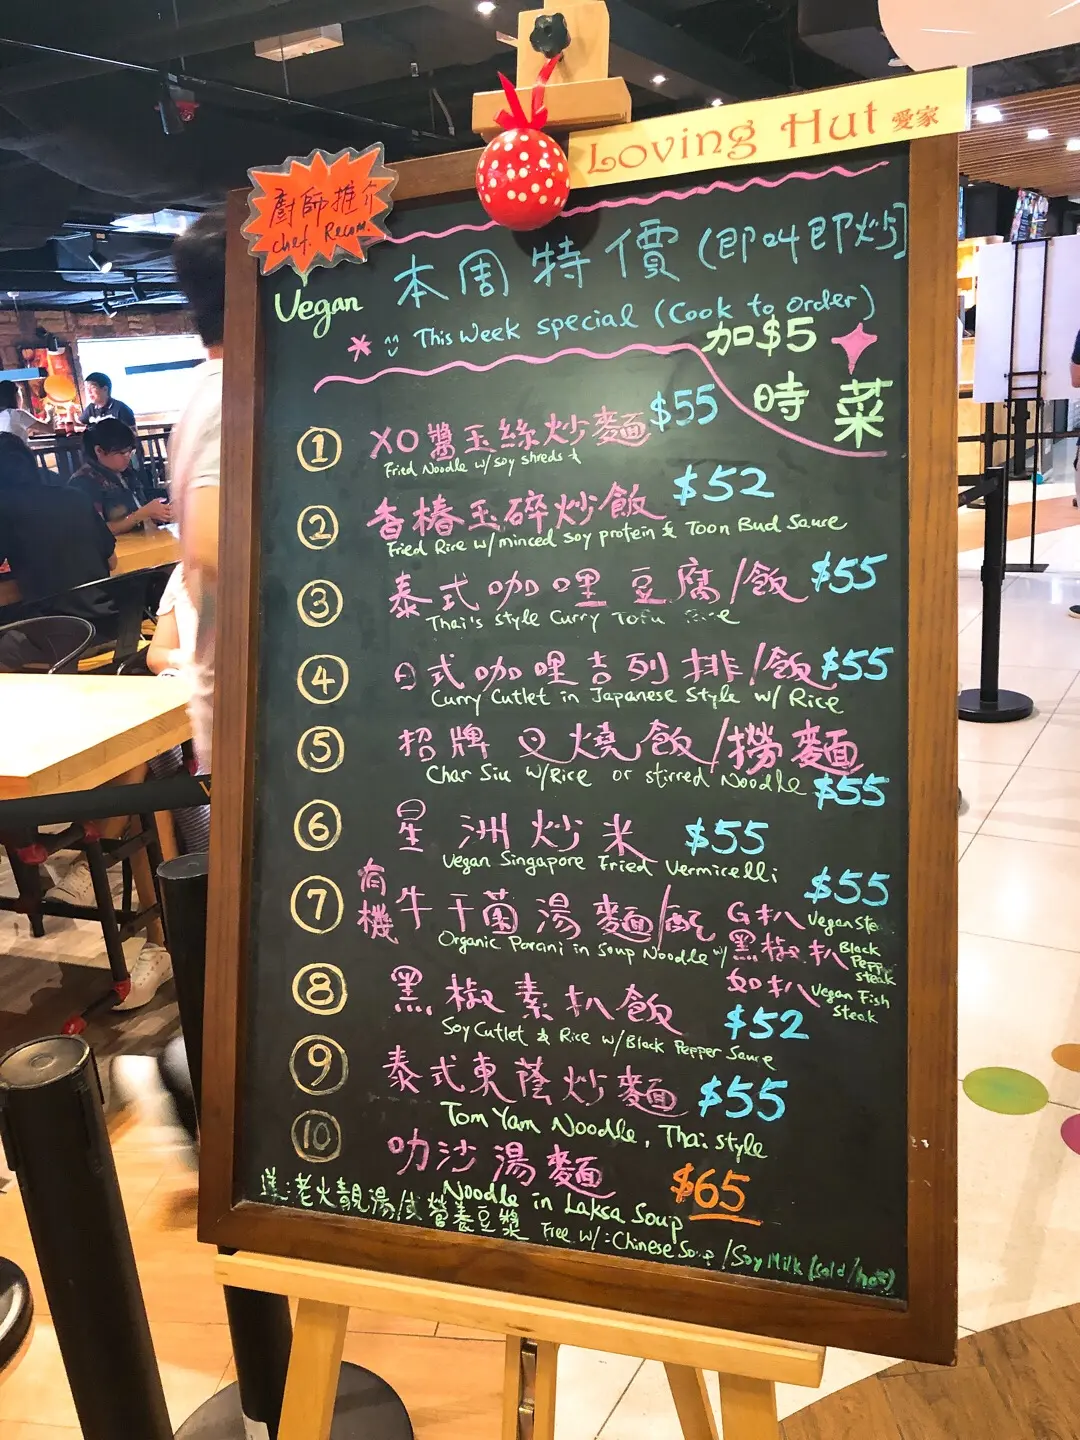 Loving Hut 愛家
廚師推介
Chef. Recom.
Vegan
本周特價(即叫即炒)
This Week special (Cook to order)
加$5
時菜
① XO醬玉絲炒麵 $55
Fried Noodle w/soy shreds
② 香椿玉碎炒飯 $52
Fried Rice w/minced soy protein & Toon Bud Sauce
③ 泰式咖哩豆腐/飯 $55
Thai's style Curry Tofu Rice
④ 日式咖哩吉列排/飯 $55
Curry Cutlet in Japanese Style w/ Rice
⑤ 招牌叉燒飯/撈麵
Char Siu w/Rice or stirred Noodle $55
⑥ 星洲炒米 $55
Vegan Singapore Fried Vermicelli
⑦ 有機牛干菌湯麵/配 $55
Organic Porcini in Soup Noodle w/
扒 Vegan Ste
黑椒扒 Black Pepp steak
扒 Vegan Fish Steak
⑧ 黑椒素扒飯 $52
Soy Cutlet & Rice w/Black Pepper Sauce
⑨ 泰式東蔭炒麵 $55
Tom Yam Noodle, Thai style
⑩ 叻沙湯麵 $65
Noodle in Laksa Soup
送:老火靚湯/或營養豆漿
Free w/:Chinese Soup /Soy Milk (cold/hot)